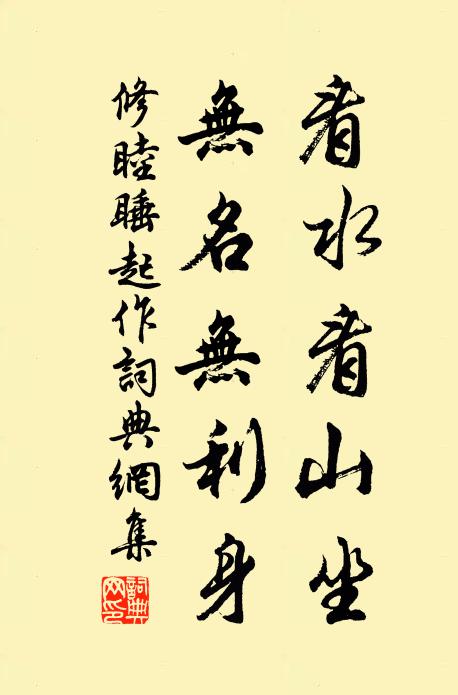 看水看山坐
無名無利身
修睦睡起作詞典網集
詞典網印